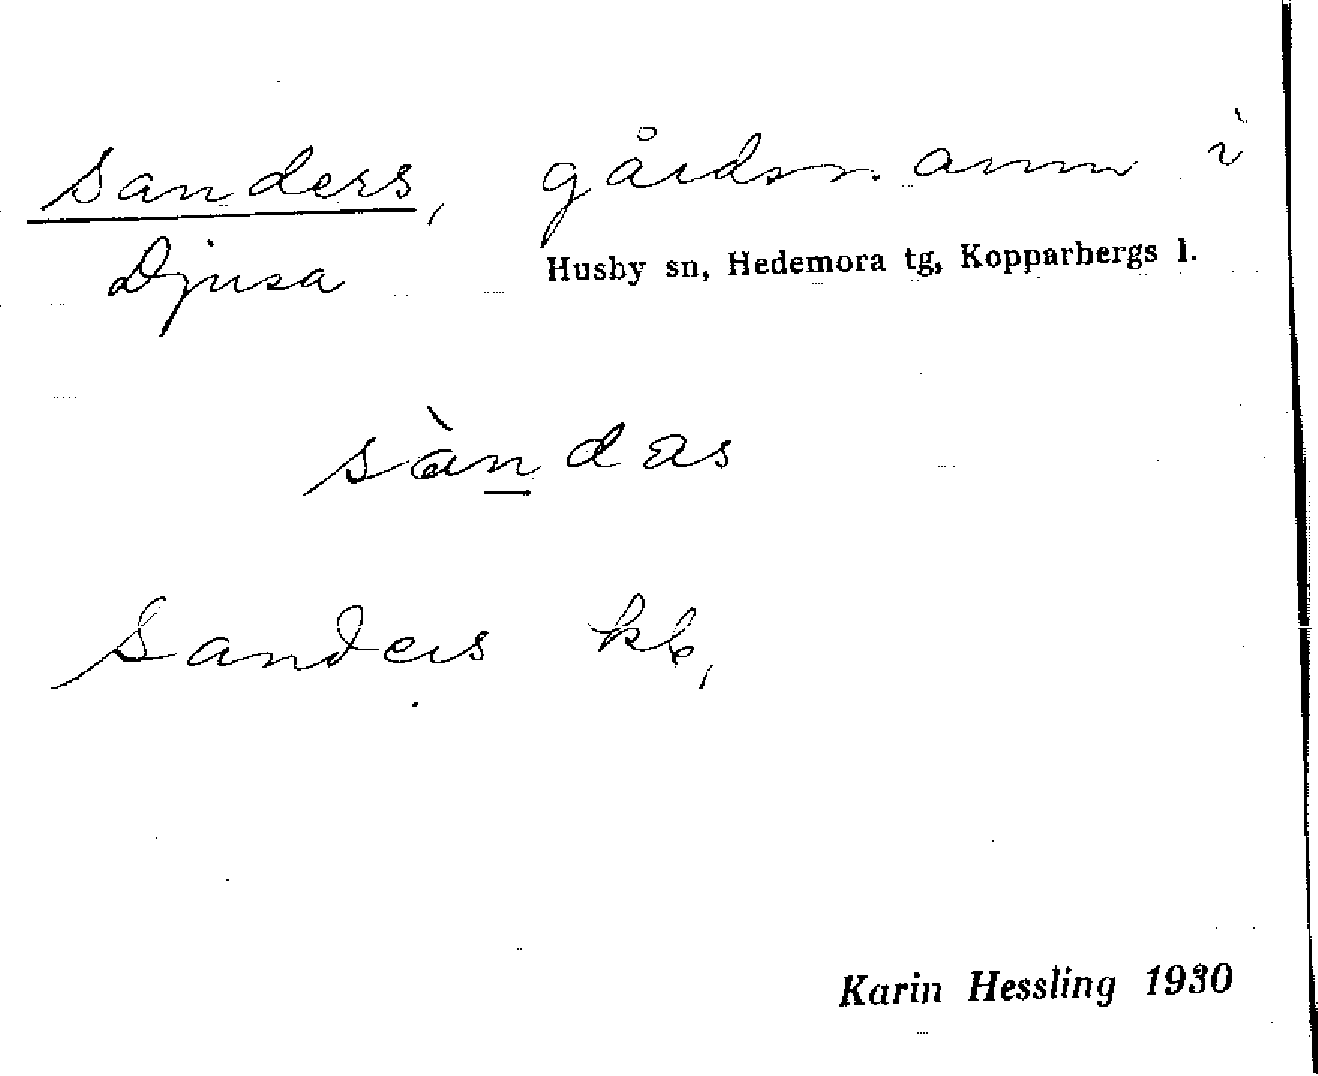 Sanders, gårdsn. ann i
Djusa Husby sn, Hedemora tg, Kopparbergs l.
sàn̲das
Sanders kb,
Karin Hessling 1930